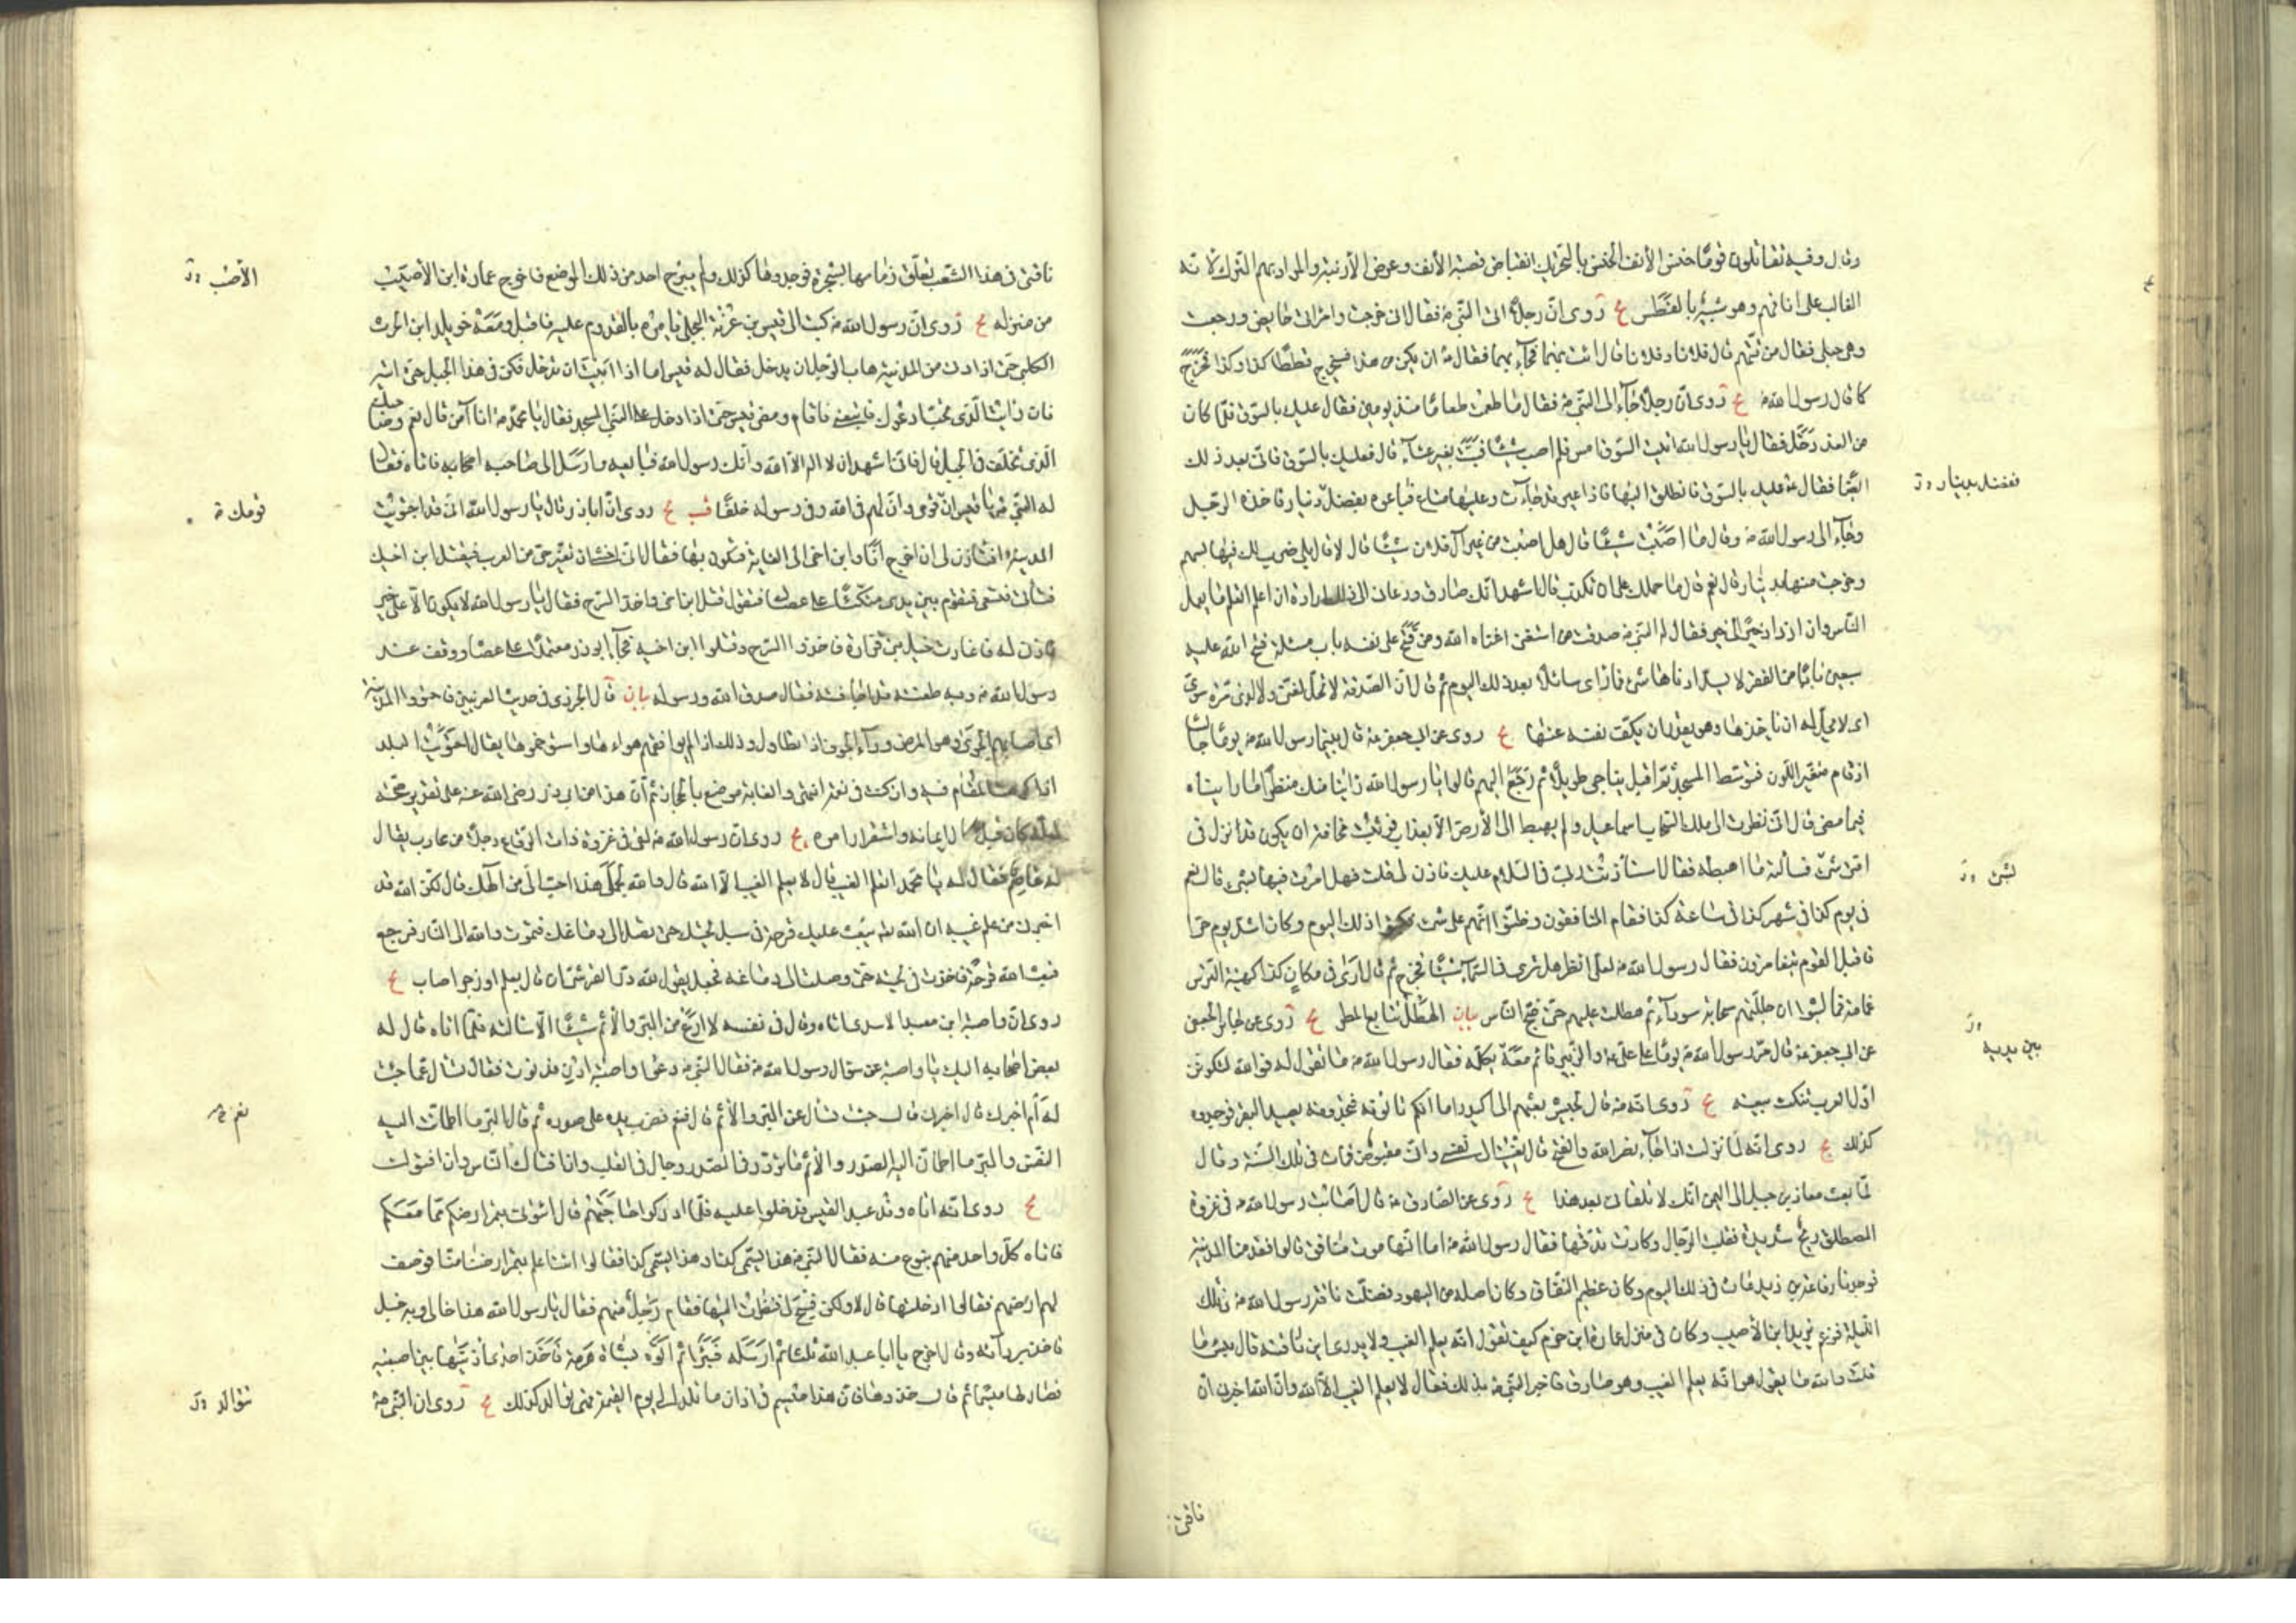 وقال وفيه تقاتلون قومًا خنس الأنف الخنس بالتحريك انقباض قصبة الأنف وعرض الأرنبة والمراد بهم الترك لأنه
الغالب على انافهم وهو شبيه بالفطس يج روى ان رجلا اتى النبي ص فقال انى خرجت وامراتى حايض ورجعت
وهى حبلى فقال من تتهم قال فلانا وفلانا قال ائت بهما فجاء بهما فقال ص ان يكن من هذا فسيخرج قططا كذا وكذا فخرج
كما قال رسول الله ص يج روى ان رجلا جاء الى النبي ص فقال ما طعمت طعاما منذ يومين فقال عليك بالسوق فلما كان
من الغد دخل فقال يا رسول الله اتيت السوق امس فلم اصب شيئا فبت بغير عشاء قال فعليك بالسوق فاتى بعد ذلك
ايضا فقال ص عليك بالسوق فانطلق اليها فاذا عير قد جاءت وعليها متاع فباعوه بفضل دينار فاخذه الرجل
فبفضل بدينار
وجاء الى رسول الله ص وقال ما اصبت شيئا قال هل اصبت من عير آل فلان شيئا قال لا قال بلى ضرب لك فيها بسهم
وخرجت منها بدينار قال نعم قال فما حملك على ان تكذب قال اشهد انك صادق ودعانى الى ذلك ارادة ان اعلم اتعلم ما يعمل
الناس وان ازداد خيرا الى خير فقال له النبي ص صدقت من استغنى اغناه الله ومن فتح على نفسه باب مسئلة فتح الله عليه
سبعين بابا من الفقر لا يسد ادناها شئ فما رأى سائلا بعد ذلك اليوم ثم قال ان الصدقة لا تحل لغنى ولا لذى مرة سوى
اى لا يحل له ان ياخذها وهو يقدر ان يكف نفسه عنها يج روى عن ابى جعفر ع قال بينما رسول الله ص يوما جالسا
اذ قام متغير اللون فتوسط المسجد ثم اقبل يناجى طويلا ثم رجع اليهم قالوا يا رسول الله راينا منك منظرا ما رايناه
فيما مضى قال انى نظرت الى ملك السحاب اسماعيل ولم يهبط الى الأرض الا بعذاب فوثبت مخافة ان يكون قد نزل فى
امتى شئ فسألته ما اهبطه فقال استأذنت ربى فى السلام عليك فاذن لى قلت فهل امرت فيها بشئ قال نعم
لشئ
فى يوم كذا فى شهر كذا فى ساعة كذا فقام المنافقون وظنوا انهم على شئ فكتبوا ذلك اليوم وكان اشد يوم حرا
فاقبل القوم يتغامزون فقال رسول الله ص لعلى انظر هل ترى فى السماء شيئا فخرج ثم قال ارى فى مكان كذا كهيئة الترس
غمامة فما لبثوا ان جللتهم سحابة سوداء ثم هطلت عليهم حتى ضج الناس بيان الهطل تتابع المطر يج روى عن
عن ابى جعفر ع قال مر رسول الله ص يوما على على ع والزبير قائم معه يكلمه فقال رسول الله ص ما تقول له فوالله لتكونن
بين يديه
اول العرب تنكث بيعته يج روى انه ص قال لجيش بعثهم الى اكيدر اما انكم تأتونه فتجدونه يصيد البقر فوجدوه
كذلك يج روى انه لما نزلت اذا جاء نصر الله والفتح قال نعيت الى نفسى وانى مقبوض فمات فى تلك السنة وقال
لما بعث معاذ بن جبل الى اليمن انك لا تلقانى بعد هذا يج روى عن الصادق ع قال اصابت رسول الله ص فى غزوة
المصطلق ريح شديدة فقلبت الرحال وكادت تدقها فقال رسول الله ص اما انها موت منافق قالوا فقدمنا المدينة
فوجدنا رفاعة بن زيد مات فى ذلك اليوم وكان عظيم النفاق وكان اصله من اليهود فضلت ناقة رسول الله ص فى تلك
الليلة فزعم يزيد ابن الأصيب وكان فى منزل عمارة ابن حزم كيف تقول انه يعلم الغيب ولا يدرى اين ناقته قال بئس ما
قلت والله ما يقول هو انه يعلم الغيب وهو صادق فاخبر النبي ص بذلك فقال لا يعلم الغيب الا الله وان الله اخبرنى ان
ناقتى
ناقتى فى هذا الشعب تعلق زمامها بشجرة فوجدوها كذلك ولم يبرح احد من ذلك الموضع فاخرج عمارة ابن الأصيب
الأصيب
من منزله يج روى ان رسول الله ص كتب الى قيس بن عرنة البجلى يامره بالقدوم عليه فاقبل ومعه خويلد ابن الحرث
الكلبى حتى اذا دنا من المدينة هاب الرجل ان يدخل فقال له قيس اما اذا ابيت ان تدخل فكن فى هذا الجبل حتى اتيه
فان رايت الذى تحب ادعوك فاتبعنى فاقام ومضى قيس حتى اذا دخل على النبي المسجد فقال يا محمد ص انا آمن قال نعم وصاحبك
الذى تخلف فى الجبل قال فانى اشهد ان لا اله الا الله وانك رسول الله فبايعه وارسل الى صاحبه فاتاه فقال
له النبي ص يا قيس ان قومى وان لهم فى الله وفى رسوله خلفا قب يج روى ان اباذر قال يا رسول الله انى قد اجتويت
قومك
المدينة افتأذن لى ان اخرج انا وابن اخى الى الغابة فنكون بها فقال انى اخشى ان تغير حى من العرب فيقتل ابن اخيك
فتأتى فتسعى فتقوم بين يدى متكئا على عصاك فتقول قتل ابن اخى واخذ السرح فقال يا رسول الله لا يكون الا على خير
فاذن له فاغارت خيل بنى فزارة فاخذوا السرح وقتلوا ابن اخيه فجاء ابوذر معتمدا على عصا ووقف عند
رسول الله ص وبه طعنة قد اجافته فقال صدق الله ورسوله بيان قال الجزرى فى حديث العرنيين فاجتووا المدينة
اى اصابهم الجوى وهو المرض وداء الجوف اذا تطاول وذلك اذا لم يوافقهم هواءها واستوخموها يقال اجتويت البلد
اذا كرهت المقام فيه وان كنت فى نعمة انتهى والغابة موضع بالحجاز ثم ان هذا من ابى ذر رضى الله عنه على تقدير صحته
لعله كان قبل كمال ايمانه واستقرار امره يج روى ان رسول الله ص لقى فى غزوة ذات الرقاع رجلا من محارب يقال
له عاصم فقال له يا محمد اتعلم الغيب قال لا يعلم الغيب الا الله قال والله لجملى هذا احب الى من الهك قال لكن الله قد
اخبرنى من علم غيبه ان الله يبعث عليك قرحة فى مسبل لحيتك حتى تصل الى دماغك فتموت والله الى النار فرجع
فبعث الله قرحة فاخذت فى لحيته حتى وصلت الى دماغه فجعل يقول لله در القرشى ان قال بعلم او زجر اصاب يج
روى ان وابصة ابن معبد الاسدى اتاه وقال فى نفسه لا ادع من البر والأثم شيئا الا سالته فلما اتاه قال له
بعض اصحابه اليك يا وابصة عن سؤال رسول الله ص فقال النبي ص دعه يا وابصة ادن فدنوت فقال تسال عما جئت
له ام اخبرك قال اخبرنى قال جئت تسأل عن البر والأثم قال نعم فضرب بيده على صدره ثم قال البر ما اطمانت اليه
نعم
النفس والبر ما اطمان اليه الصدر والأثم ما تردد فى الصدر وجال فى القلب وان افتاك الناس وان افتوك
يج روى انه اتاه وفد عبد القيس فدخلوا عليه فلما ادركوا حاجتهم قال ائتونى بتمر ارضكم مما معكم
فاتاه كل واحد منهم بنوع منه فقال النبي ص هذا يسمى كذا وهذا يسمى كذا فقالوا انت اعلم بتمر ارضنا منا فوصف
لهم ارضهم فقالوا ادخلتها قال لا ولكن فسح لى فنظرت اليها فقام رجل منهم فقال يا رسول الله هذا خالى وبه خبل
فاخذ بردائه وقال اخرج يا عبد الله ثلثا ثم ارسله فبرأ ثم اتوه بشاة هرمة فاخذ احدى اذنيها بين اصبعيه
فصار لها ميسما ثم قال خذوها فان هذا ميسم فى اذان ما تلد الى يوم القيمة فهى توالد كذلك يج روى ان النبي ص
توالد